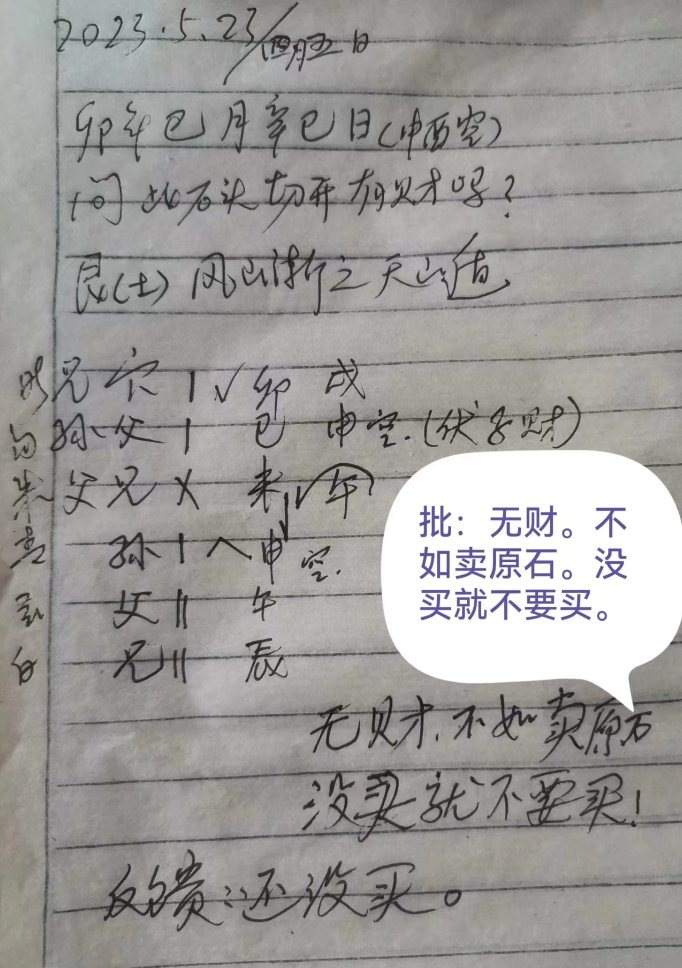 2023.5.23/四月五日
卯年巳月辛巳日(申酉空)
问此石头切开有财吗?
艮(土) 风山渐之天山遁
兄 官 | √ 卯 戌
勾 孙 父 | 巳 申空.(伏子财)
朱 父 兄 X 未 √ 午
青 孙 | 申 空.
玄 父 || 午
白 兄 || 辰
批:无财。不
如卖原石。没
买就不要买。
无财.不如卖原石
没买就不要买!
反馈:还没买。